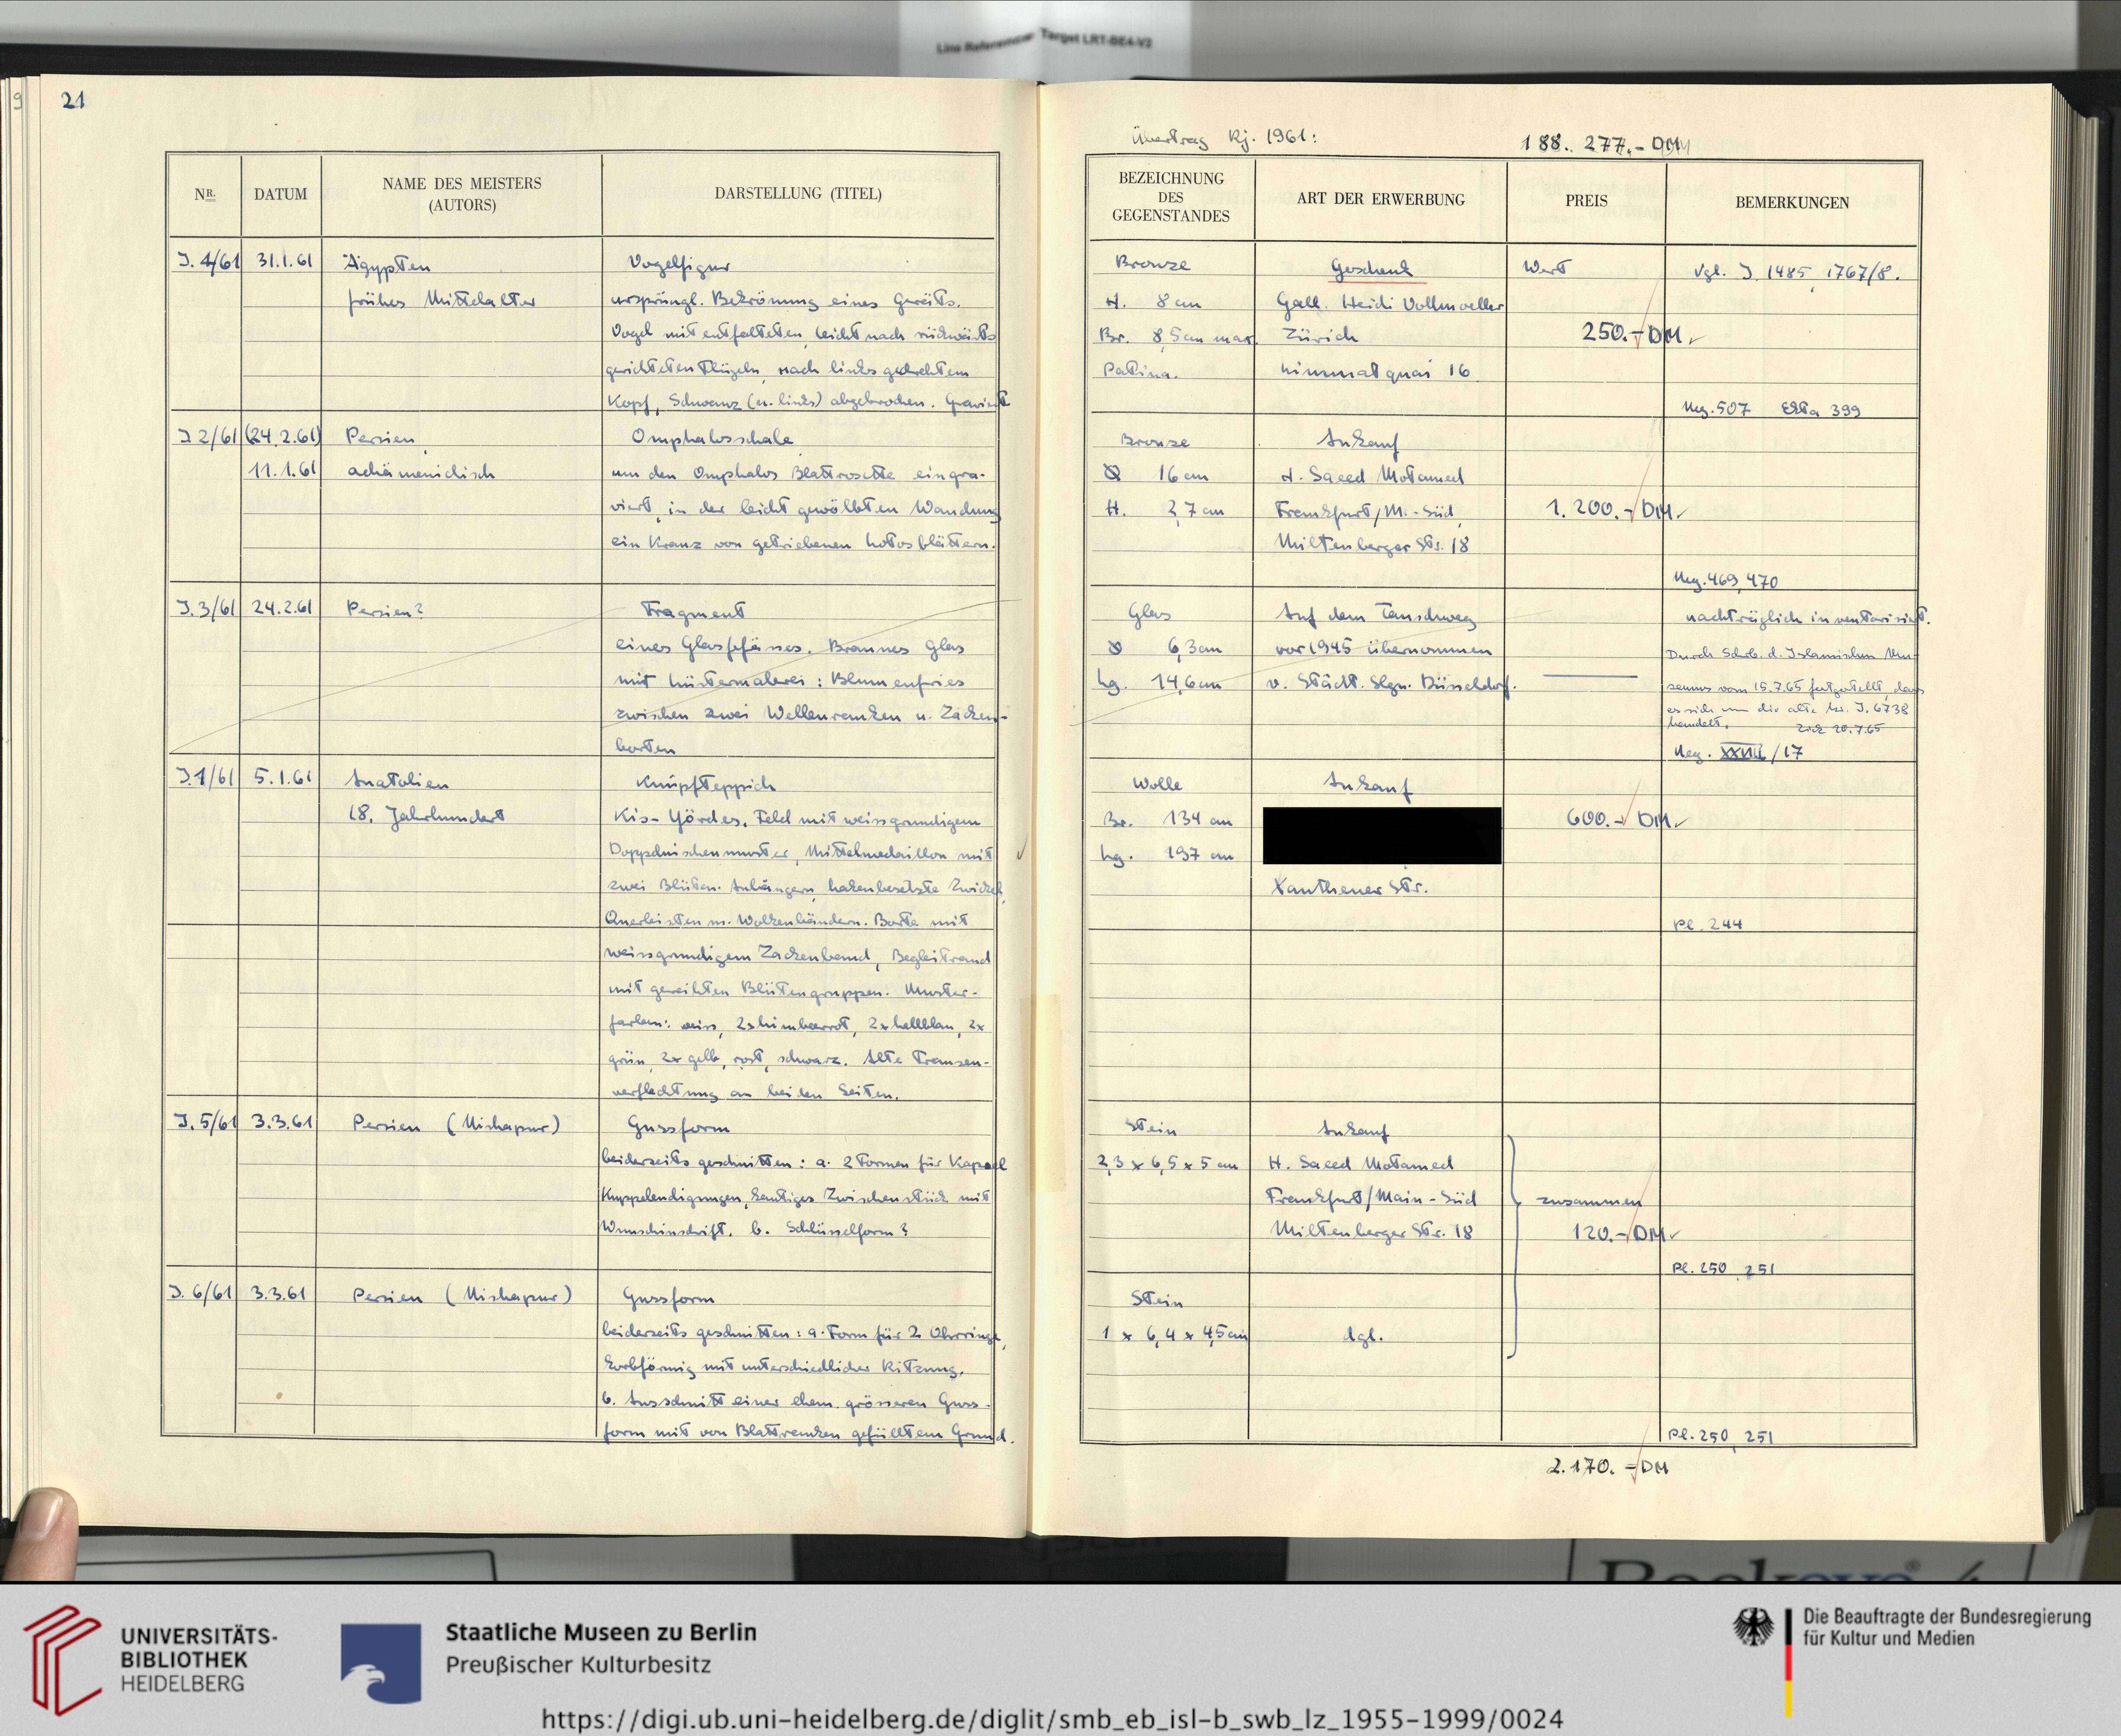 Line Reference Target LRT-BE4-V2
21
Übertrag Rj. 1961: 188.277.- DM
NR. DATUM NAME DES MEISTERS (AUTORS) DARSTELLUNG (TITEL)
BEZEICHNUNG DES GEGENSTANDES ART DER ERWERBUNG PREIS BEMERKUNGEN
J. 4/61 31.1.61 Ägypten Vogelfigur
frühes Mittelalter ursprüngl. Bekrönung eines Geräts.
Vogel mit entfalteten, leicht nach rückwärts
gerichteten Flügeln, nach links gedrehtem
Kopf, Schwanz (u. links) abgebrochen. Graviert
Bronze Geschenk Wert Vgl. J. 1485, 1767/8.
H. 8 cm Gall. Heidi Vollmoeller
Br. 8,5 cm max. Zürich 250.- DM
Patina. Limmatquai 16
Neg. 507 Ekta 399
J 2/61 (24.2.61) Persien, Omphalosschale
11.1.61 achämenidisch um den Omphalos Blattrosette eingra-
viert, in der leicht gewölbten Wandung
ein Kranz von getriebenen Lotosblättern.
Bronze Ankauf
Ø 16 cm H. Saeed Motamed
H. 2,7 cm Frankfurt/M.-Süd, 1.200.- DM
Miltenberger Str. 18
Neg. 469, 470
J. 3/61 24.2.61 Persien? Fragment
eines Glasgefässes. Braunes Glas
mit Lüstermalerei: Blumenfries
zwischen zwei Wellenranken u. Zacken-
borten
Glas Auf dem Tauschweg nachträglich inventarisiert.
Ø 6,3 cm vor 1945 übernommen Durch Schrb. d. Islamischen Mu-
Lg. 14,6 cm v. Städt. Slgn. Düsseldorf. seums vom 15.7.65 festgestellt, dass
es sich um die alte Nr. J. 6738
handelt. Zick 20.7.65
Neg. XXIII/17
J. 1/61 5.1.61 Anatolien Knüpfteppich
18. Jahrhundert Kis-Yördes. Feld mit weissgrundigem
Doppelnischenmuster, Mittelmedaillon mit
zwei Blüten-Anhängern, hakenbesetzte Zwickel,
Querleisten m. Wolkenbändern. Borte mit
weissgrundigem Zackenband, Begleitrand
mit gereihten Blütengruppen. Muster-
farben: weiss, 2x himbeerrot, 2x hellblau, 2x
grün, 2x gelb, rost, schwarz. Alte Fransen-
verflechtung an beiden Seiten.
Wolle Ankauf
Br. 134 cm 600.- DM
Lg. 197 cm
Xanthener Str.
Pl. 244
J. 5/61 3.3.61 Persien (Nishapur) Gussform
beiderseits geschnitten: a. 2 Formen für Kapsel
Kuppelendigungen, kantiges Zwischenstück mit
Wunschinschrift. b. Schlüsselform?
Stein Ankauf
2,3 x 6,5 x 5 cm H. Saeed Motamed
Frankfurt/Main-Süd zusammen
Miltenberger Str. 18 120.- DM
Pl. 250, 251
J. 6/61 3.3.61 Persien (Nishapur) Gussform
beiderseits geschnitten: a. Form für 2 Ohrringe,
korbförmig mit unterschiedlicher Ritzung.
b. Ausschnitt einer ehem. grösseren Guss-
form mit von Blattranken gefülltem Grund.
Stein
1 x 6,4 x 4,5 cm dgl.
Pl. 250, 251
2.170.- DM
UNIVERSITÄTS-
BIBLIOTHEK
HEIDELBERG
Staatliche Museen zu Berlin
Preußischer Kulturbesitz
Die Beauftragte der Bundesregierung
für Kultur und Medien
https://digi.ub.uni-heidelberg.de/diglit/smb_eb_isl-b_swb_lz_1955-1999/0024